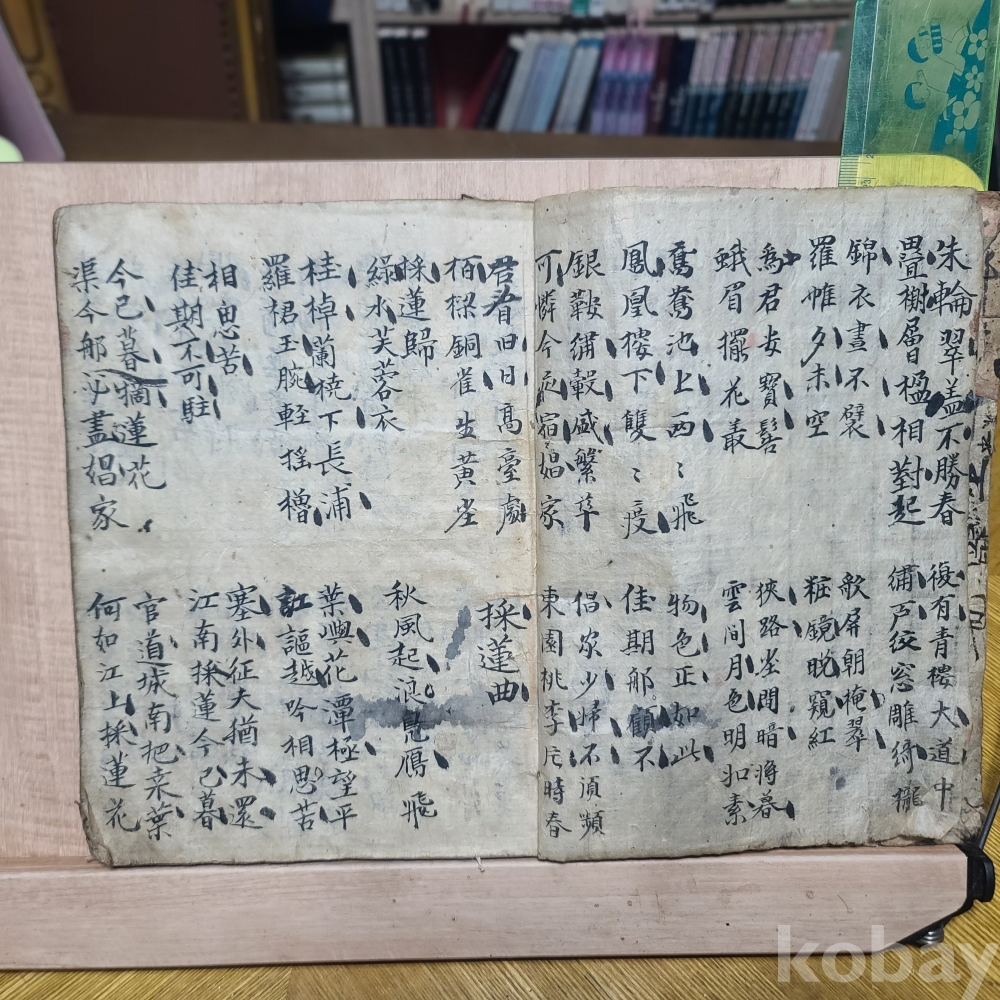 朱輪翠盖不勝春 復有青樓大道中
疊榭層楹相對起 繡戶紋窓雕綺櫳
錦衣晝不襞 歌屏朝掩翠
羅帷夕未空 粧鏡晩窺紅
爲君安寶髻 狹路坐間暗將暮
蛾眉擺花叢 雲間月色明如素
鴛鴦池上兩〻飛 物色正如此
鳳凰樓下雙〻度 佳期那顧不
銀鞍繡轂盛繁華 倡家少婦不須顰
可憐今夜宿娼家 東園桃李片時春
君看旧日高臺處 採蓮曲
栢樑銅雀生黃尘
採蓮歸
綠水芙蓉衣 秋風起浪鳧鴈飛
桂棹蘭橈下長浦 葉嶼花潭極望平
羅裙玉腕輕搖櫓 江謳越吟相思苦
相思苦 塞外征夫猶未還
佳期不可駐 江南採蓮今已暮
今已暮摘蓮花 官道城南把桒葉
渠今那必盡娼家 何如江上採蓮花
kobay